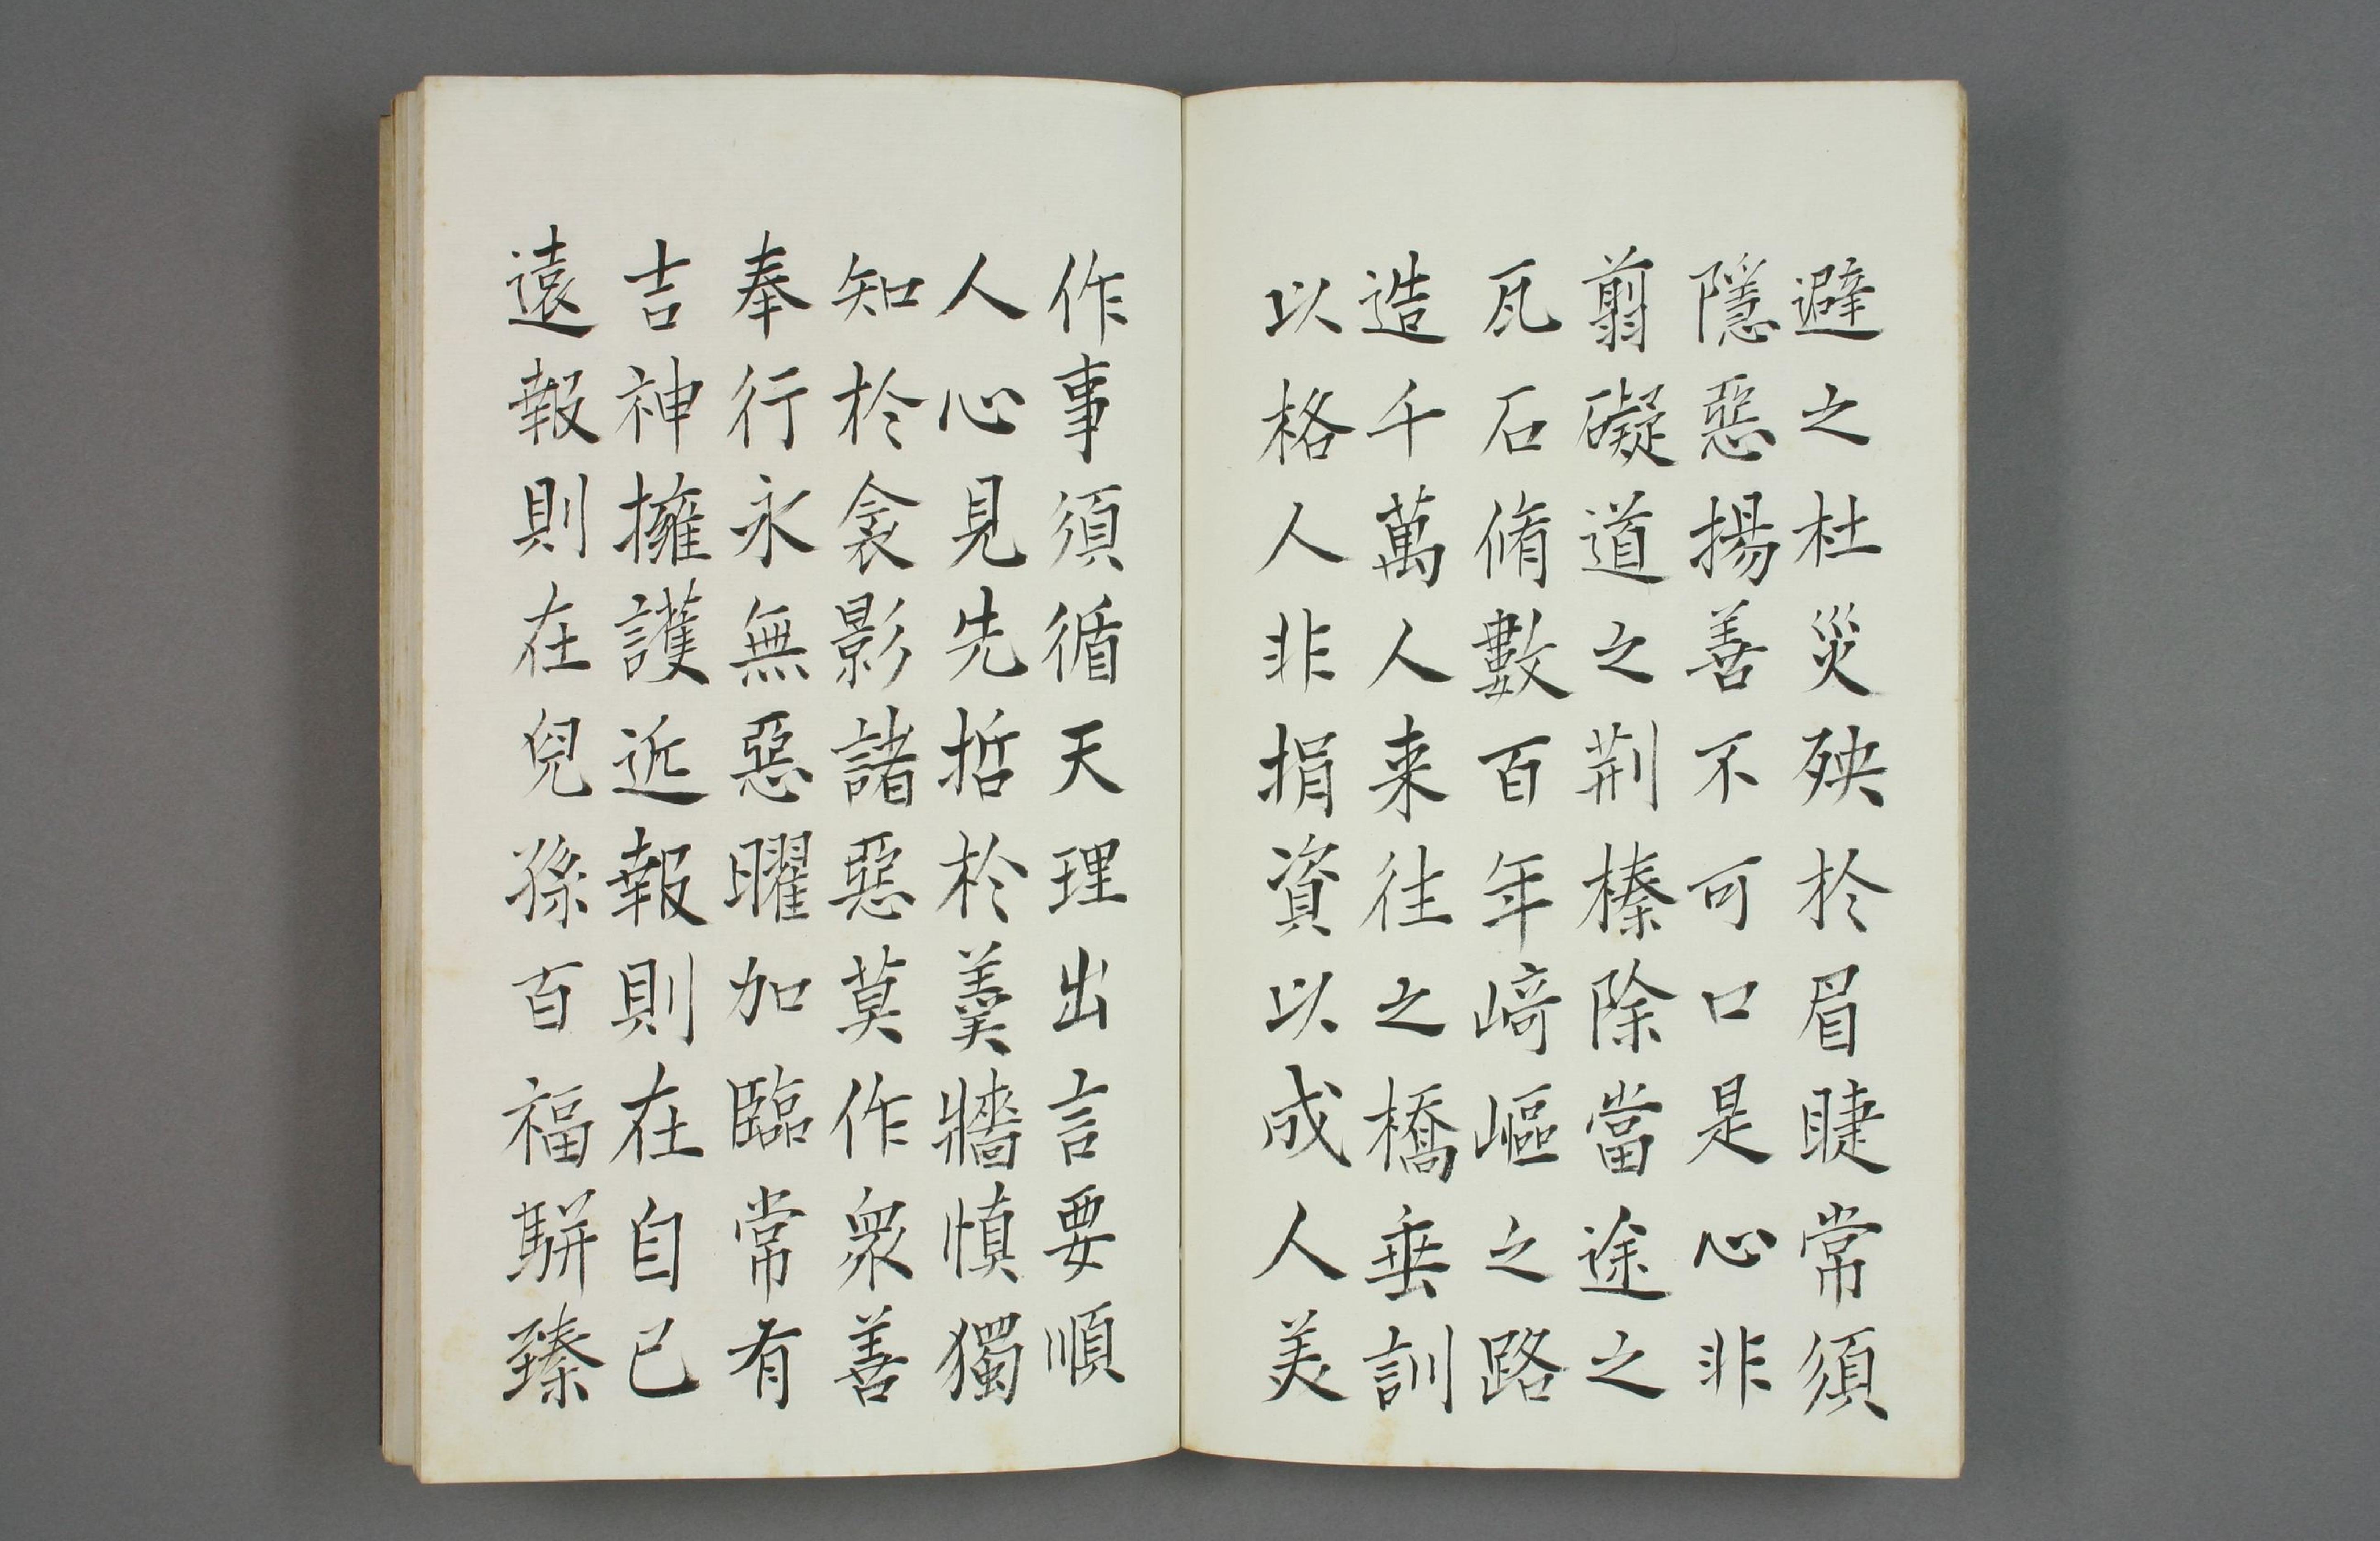 避之杜災殃於眉睫常須
隱惡揚善不可口是心非
翦礙道之荆榛除當途之
瓦石脩數百年﨑嶇之路
造千萬人来往之橋垂訓
以格人非捐資以成人美
作事須循天理出言要順
人心見先哲於羹牆慎獨
知於衾影諸惡莫作衆善
奉行永無惡曜加臨常有
吉神擁護近報則在自己
遠報則在兒孫百福駢臻